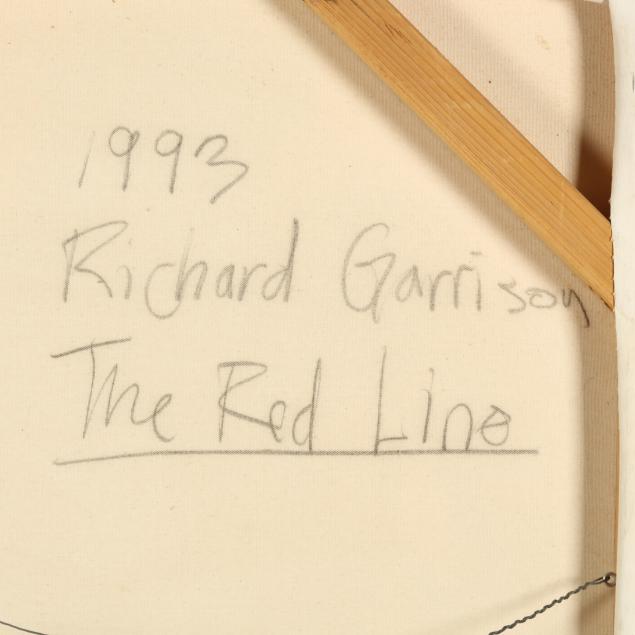 1993
Richard Garrison
The Red Line